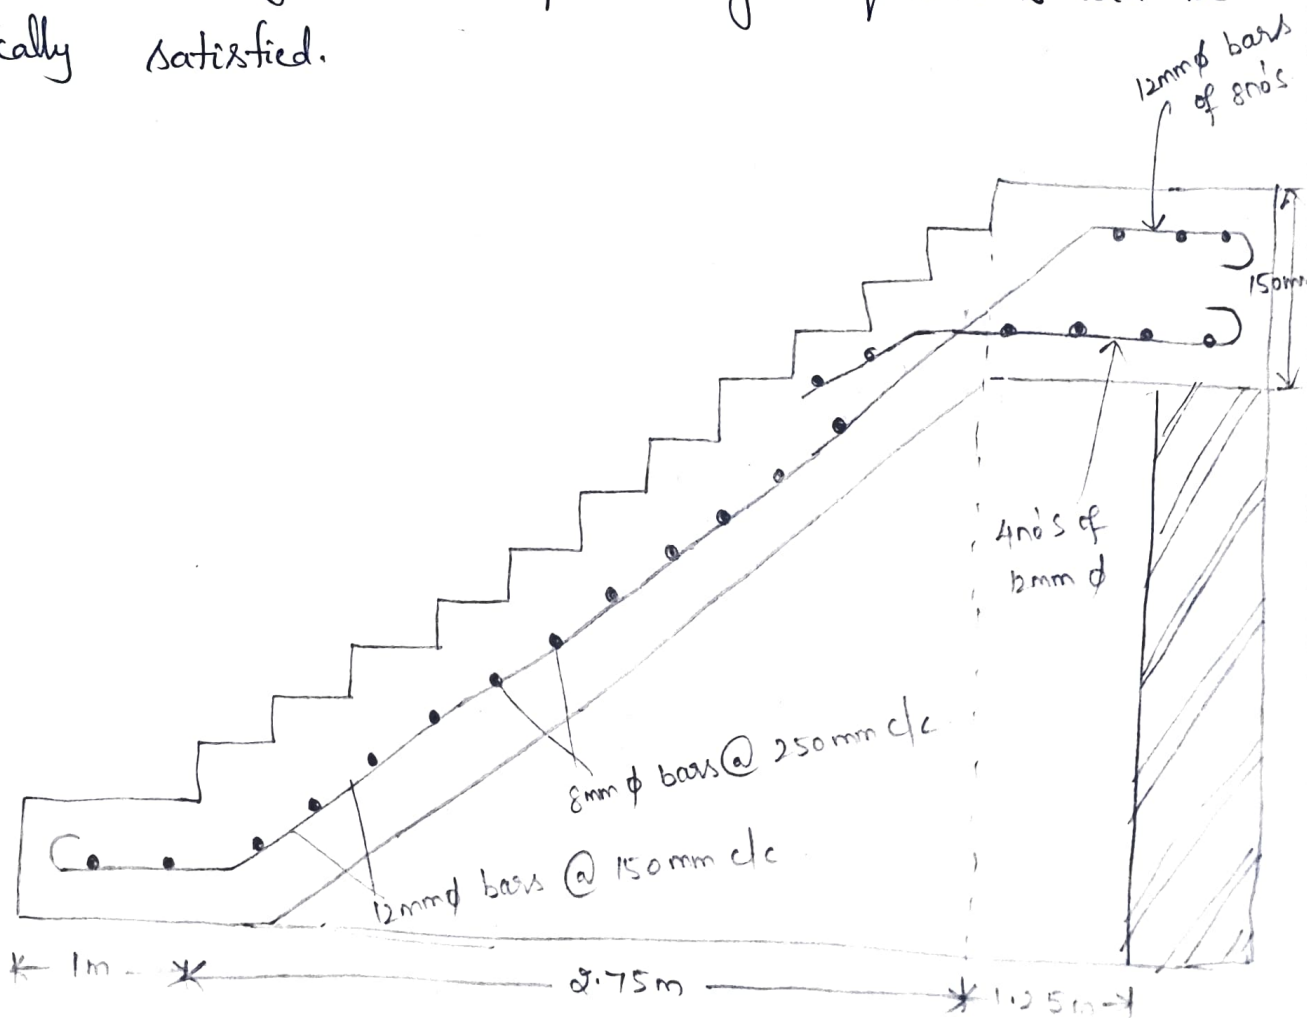 cally satisfied.
12mmϕ bars
of 8nó's
150m
4nó's of
12mm ϕ
8mm ϕ bars @ 250mm c/c
12mmϕ bars @ 150mm c/c
1m
2.75m
1.25m